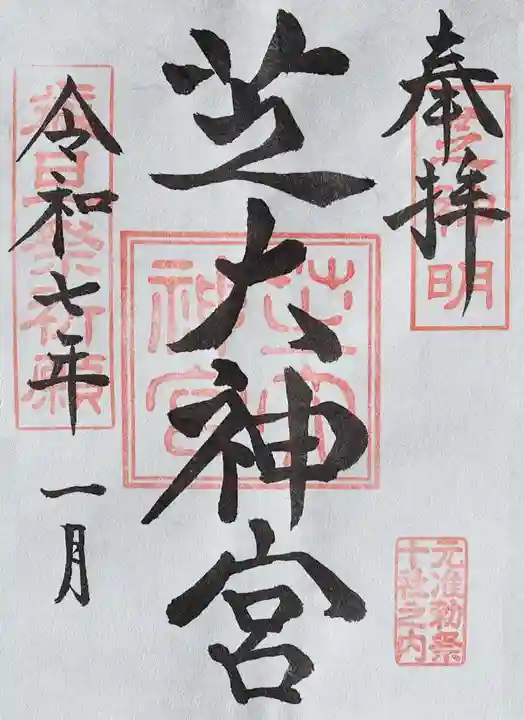 奉拝
芝神明
元准勅祭
十社之内
芝大神宮
芝大
神宮
令和七年
一月